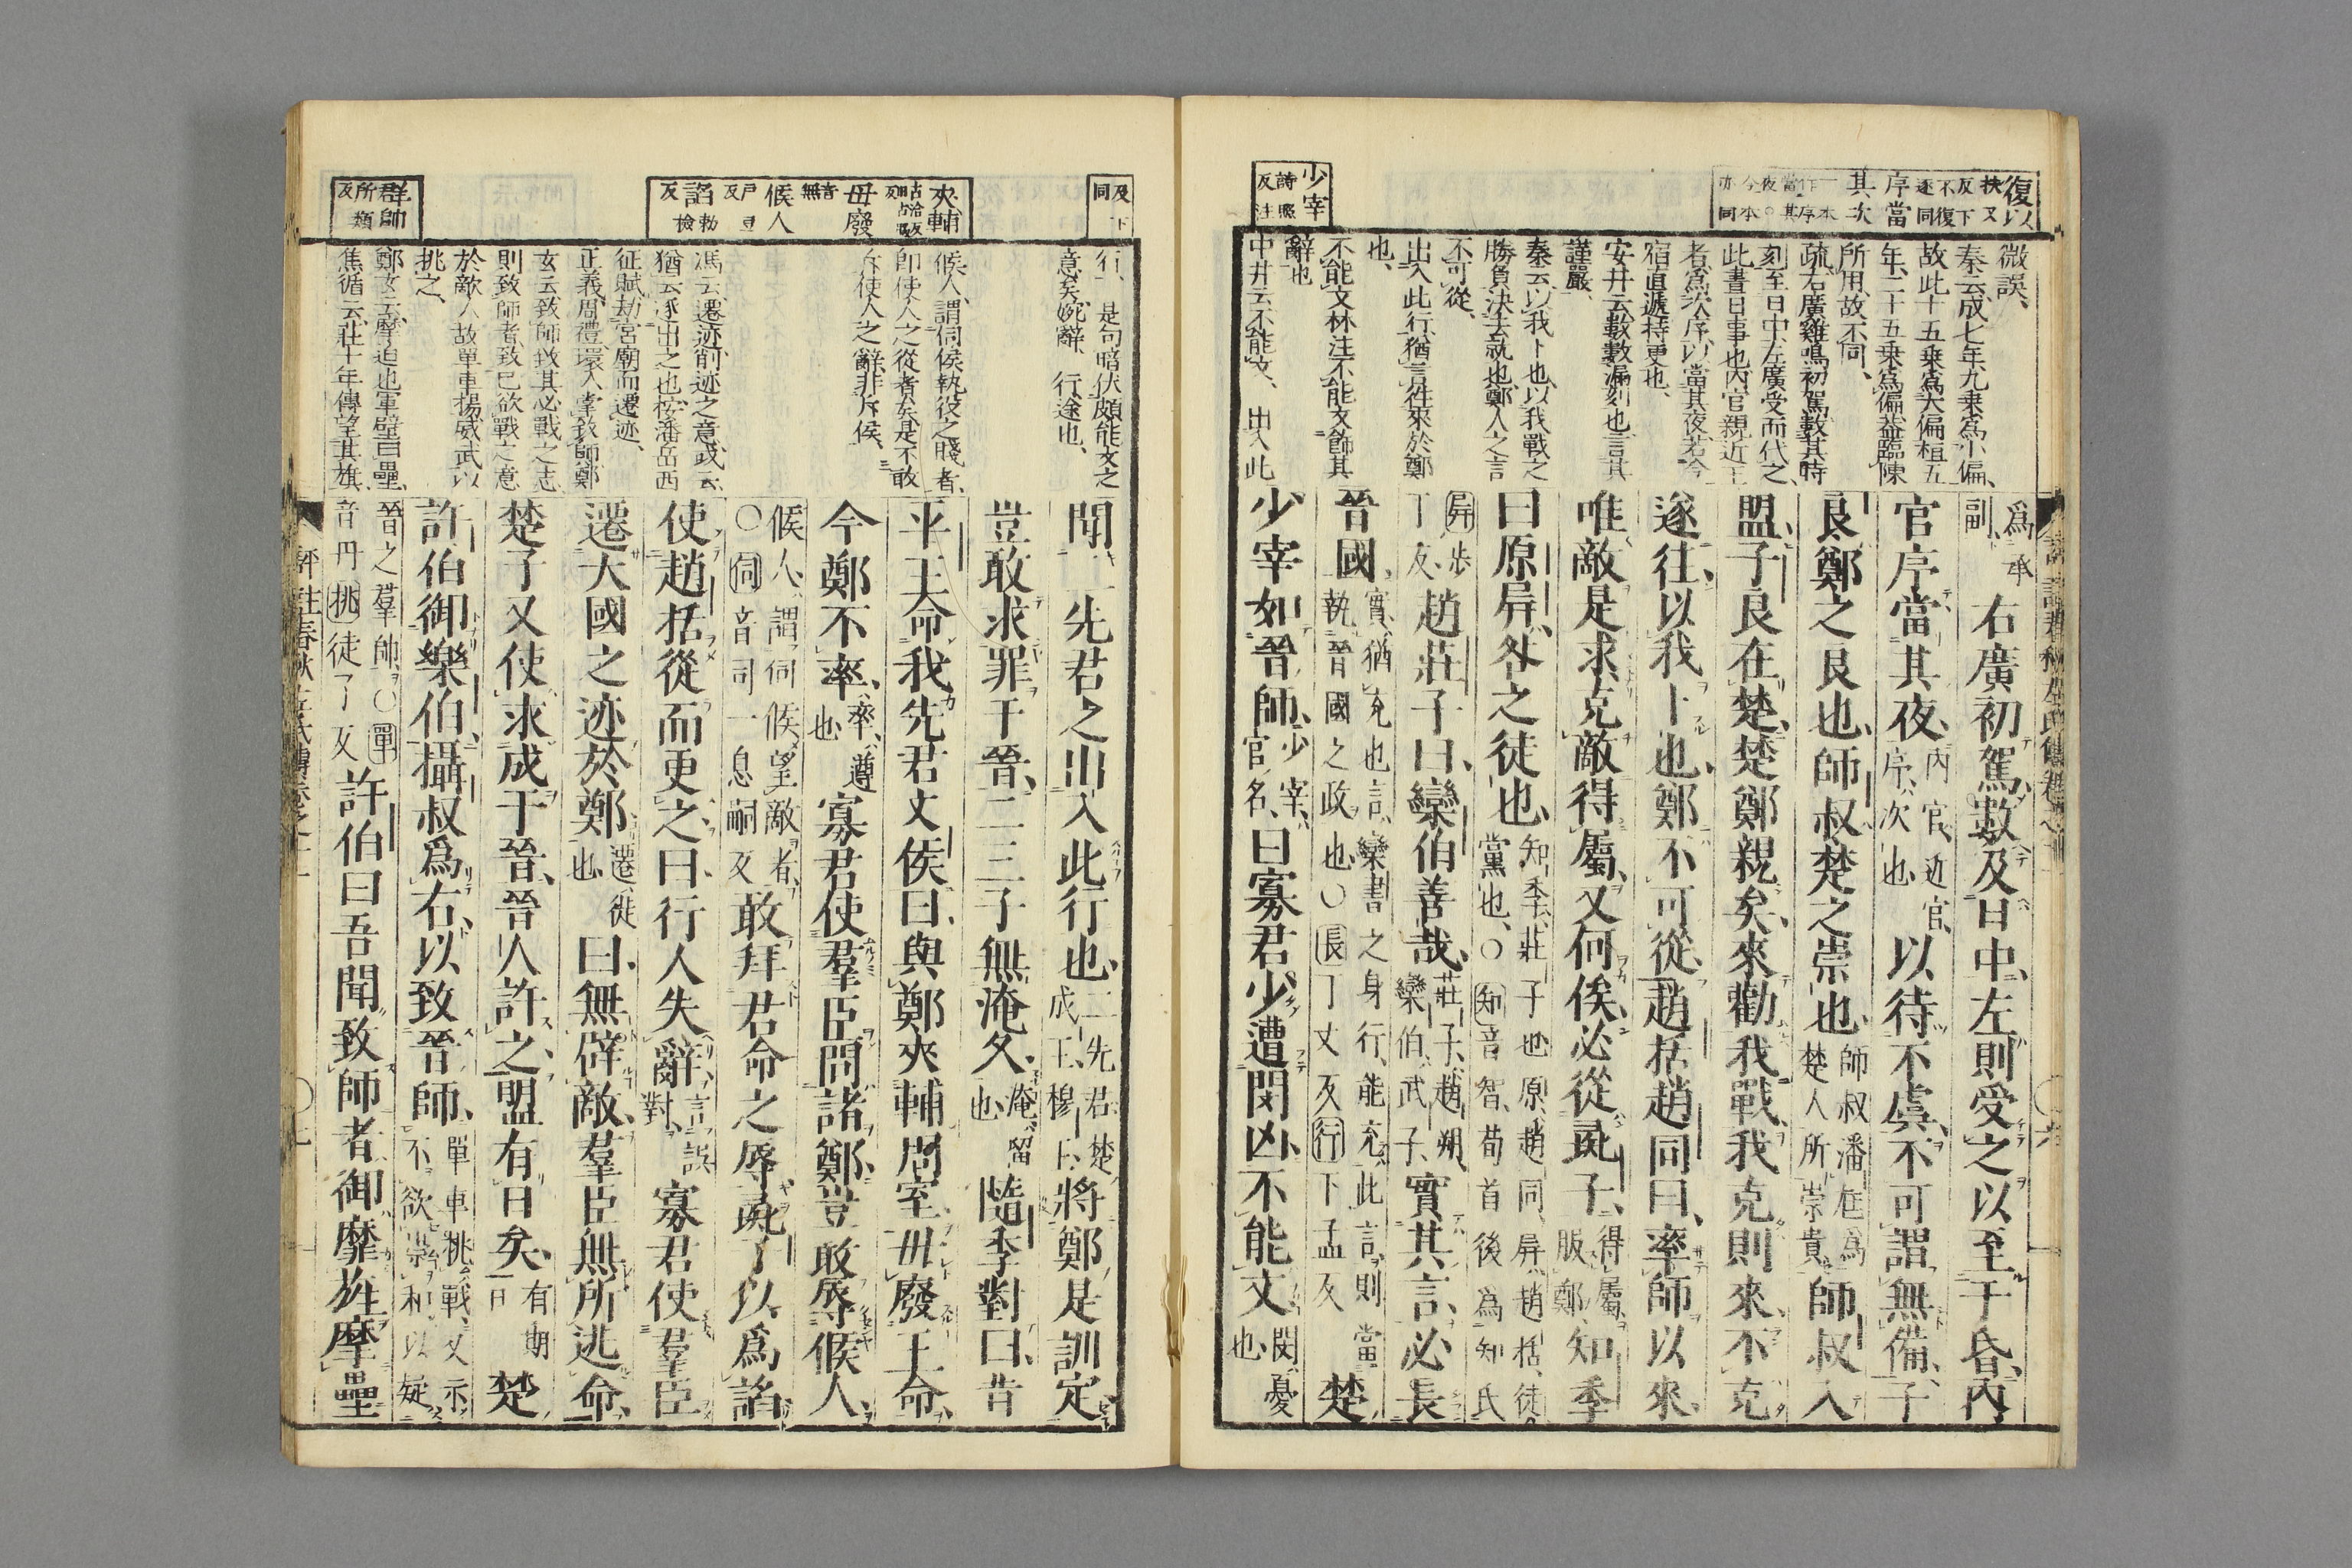 復以
扶又反下不復逐同
序當
其次
少宰
詩照反注
微誤、
秦云、成七年、九乘爲小偏、
故此十五乘爲大偏、桓五
年、二十五乘爲偏、蓋臨陳
所用、故不同、
疏、右廣雞鳴初駕、數其時
刻、至日中、左廣受而代之、
此晝日事也、內官親近王
者、爲次序、以當其夜、若今
宿直遞持更也、
安井云、數、數漏刻也、言其
謹嚴、
秦云、以我卜也、以我戰之
勝負決去就也、鄭人之言
不可從、
出入此行、猶言往來於鄭
也、
不能文、林注、不能文飾其
辭也
中井云、不能文、出入此
爲承副、右廣初駕、數及日中、左則受之、以至于昏、內
官序當其夜、內官、近官、序、次也、以待不虞、不可謂無備、子
良鄭之良也、師叔楚之崇也、師叔、潘尫、爲楚人所崇貴、師叔入
盟、子良在楚、楚鄭親矣、來勸我戰、我克則來、不克
遂往、以我卜也、鄭不可從、趙括趙同曰、率師以來、
唯敵是求、克敵得屬、又何俟、必從彘子、得屬、服鄭、知季
曰、原屏、咎之徒也、知季、莊子也、原、趙同、屏、趙括、徒、黨也、○知音智、荀首後爲知氏
屏步丁反、趙莊子曰、欒伯善哉、莊子、趙朔、欒伯、武子、實其言、必長
晉國、實、猶充也、言欒書之身行、能充此言、則當執晉國之政也、○長丁丈反行下孟反楚
少宰如晉師、少宰、官名、曰、寡君少遭閔凶、不能文、閔、憂也、
反下同
夾輔
毋廢
音無
候人
諂
勑檢反
群帥
所類反
行、是句暗伏、頗能文之
意矣、婉辭、行、途也、
候人、謂伺候執役之賤者、
即使人之從者矣、是不敢
斥使人之辭、非斥候、
馮云、遷迹、削迹之意、或云、
猶云逐出之也、按潘岳西
征賦、劫宮廟而遷迹、
正義、周禮、環人、掌致師、鄭
玄云、致師、致其必戰之志
則致師者、致已欲戰之意
於敵人、故單車揚威武、以
挑之、
鄭玄云、摩、迫也、軍壁曰壘、
焦循云、莊十年傳、望其旗
聞二先君之出入此行也、二先君、楚成王、穆王、將鄭是訓定、
豈敢求罪于晉、二三子無淹久、淹、留也、隨季對曰、昔
平王命我先君文侯曰、與鄭夾輔周室、毋廢王命、
今鄭不率、率、遵也、寡君使羣臣問諸鄭、豈敢辱候人、
候人、謂伺候望敵者、○伺音司一息嗣反敢拜君命之辱、彘子以爲諂、
使趙括從而更之曰、行人失辭、言誤對、寡君使羣臣
遷大國之迹於鄭、遷、徙也、曰、無辟敵、羣臣無所逃命、
楚子又使求成于晉、晉人許之、盟有日矣、有期日、楚
許伯御樂伯、攝叔爲右、以致晉師、單車挑戰、又示不欲崇和、以疑
晉之羣帥、○單音丹挑徒了反許伯曰、吾聞致師者、御靡旌摩壘
評註春秋左氏傳卷之十一